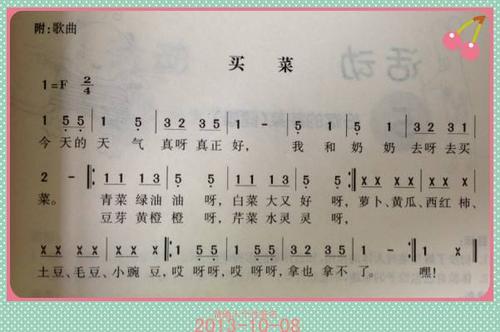 附:歌曲
买 菜
1=F 2/4
1 5 5 | 1 5 | 3 2 3 5 | 1 - | 1 5 5 | 1 5 | 3 2 3 5 |
今 天的 天 气 真呀真正 好， 我 和奶 奶 去呀去买
2 - |: 1 1 1 3 | 5 5 2 | 1 1 1 3 | 5 5 2 :|: x x x x | x x x x |
菜。 青菜 绿油 油 呀，白菜 大又 好 呀，萝卜、黄瓜、西红 柿、
豆芽 黄橙 橙 呀，芹菜 水灵 灵 呀，
x x x x | x x x :| 1 5 5 | 1 5 5 | 3 2 3 5 | 1 - :| 1 x |
土豆、毛豆、小豌 豆，哎 呀呀，哎 呀呀，拿也 拿不 了。 嘿！
2013-10-08